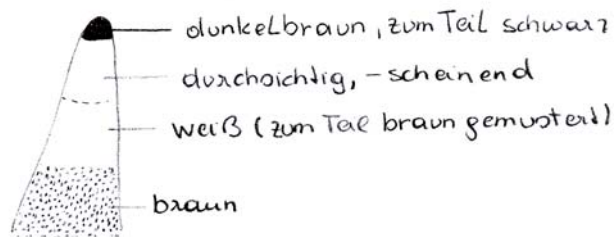 dunkelbraun, zum Teil schwarz
durchsichtig, -scheinend
weiß (zum Teil braun gemustert)
braun